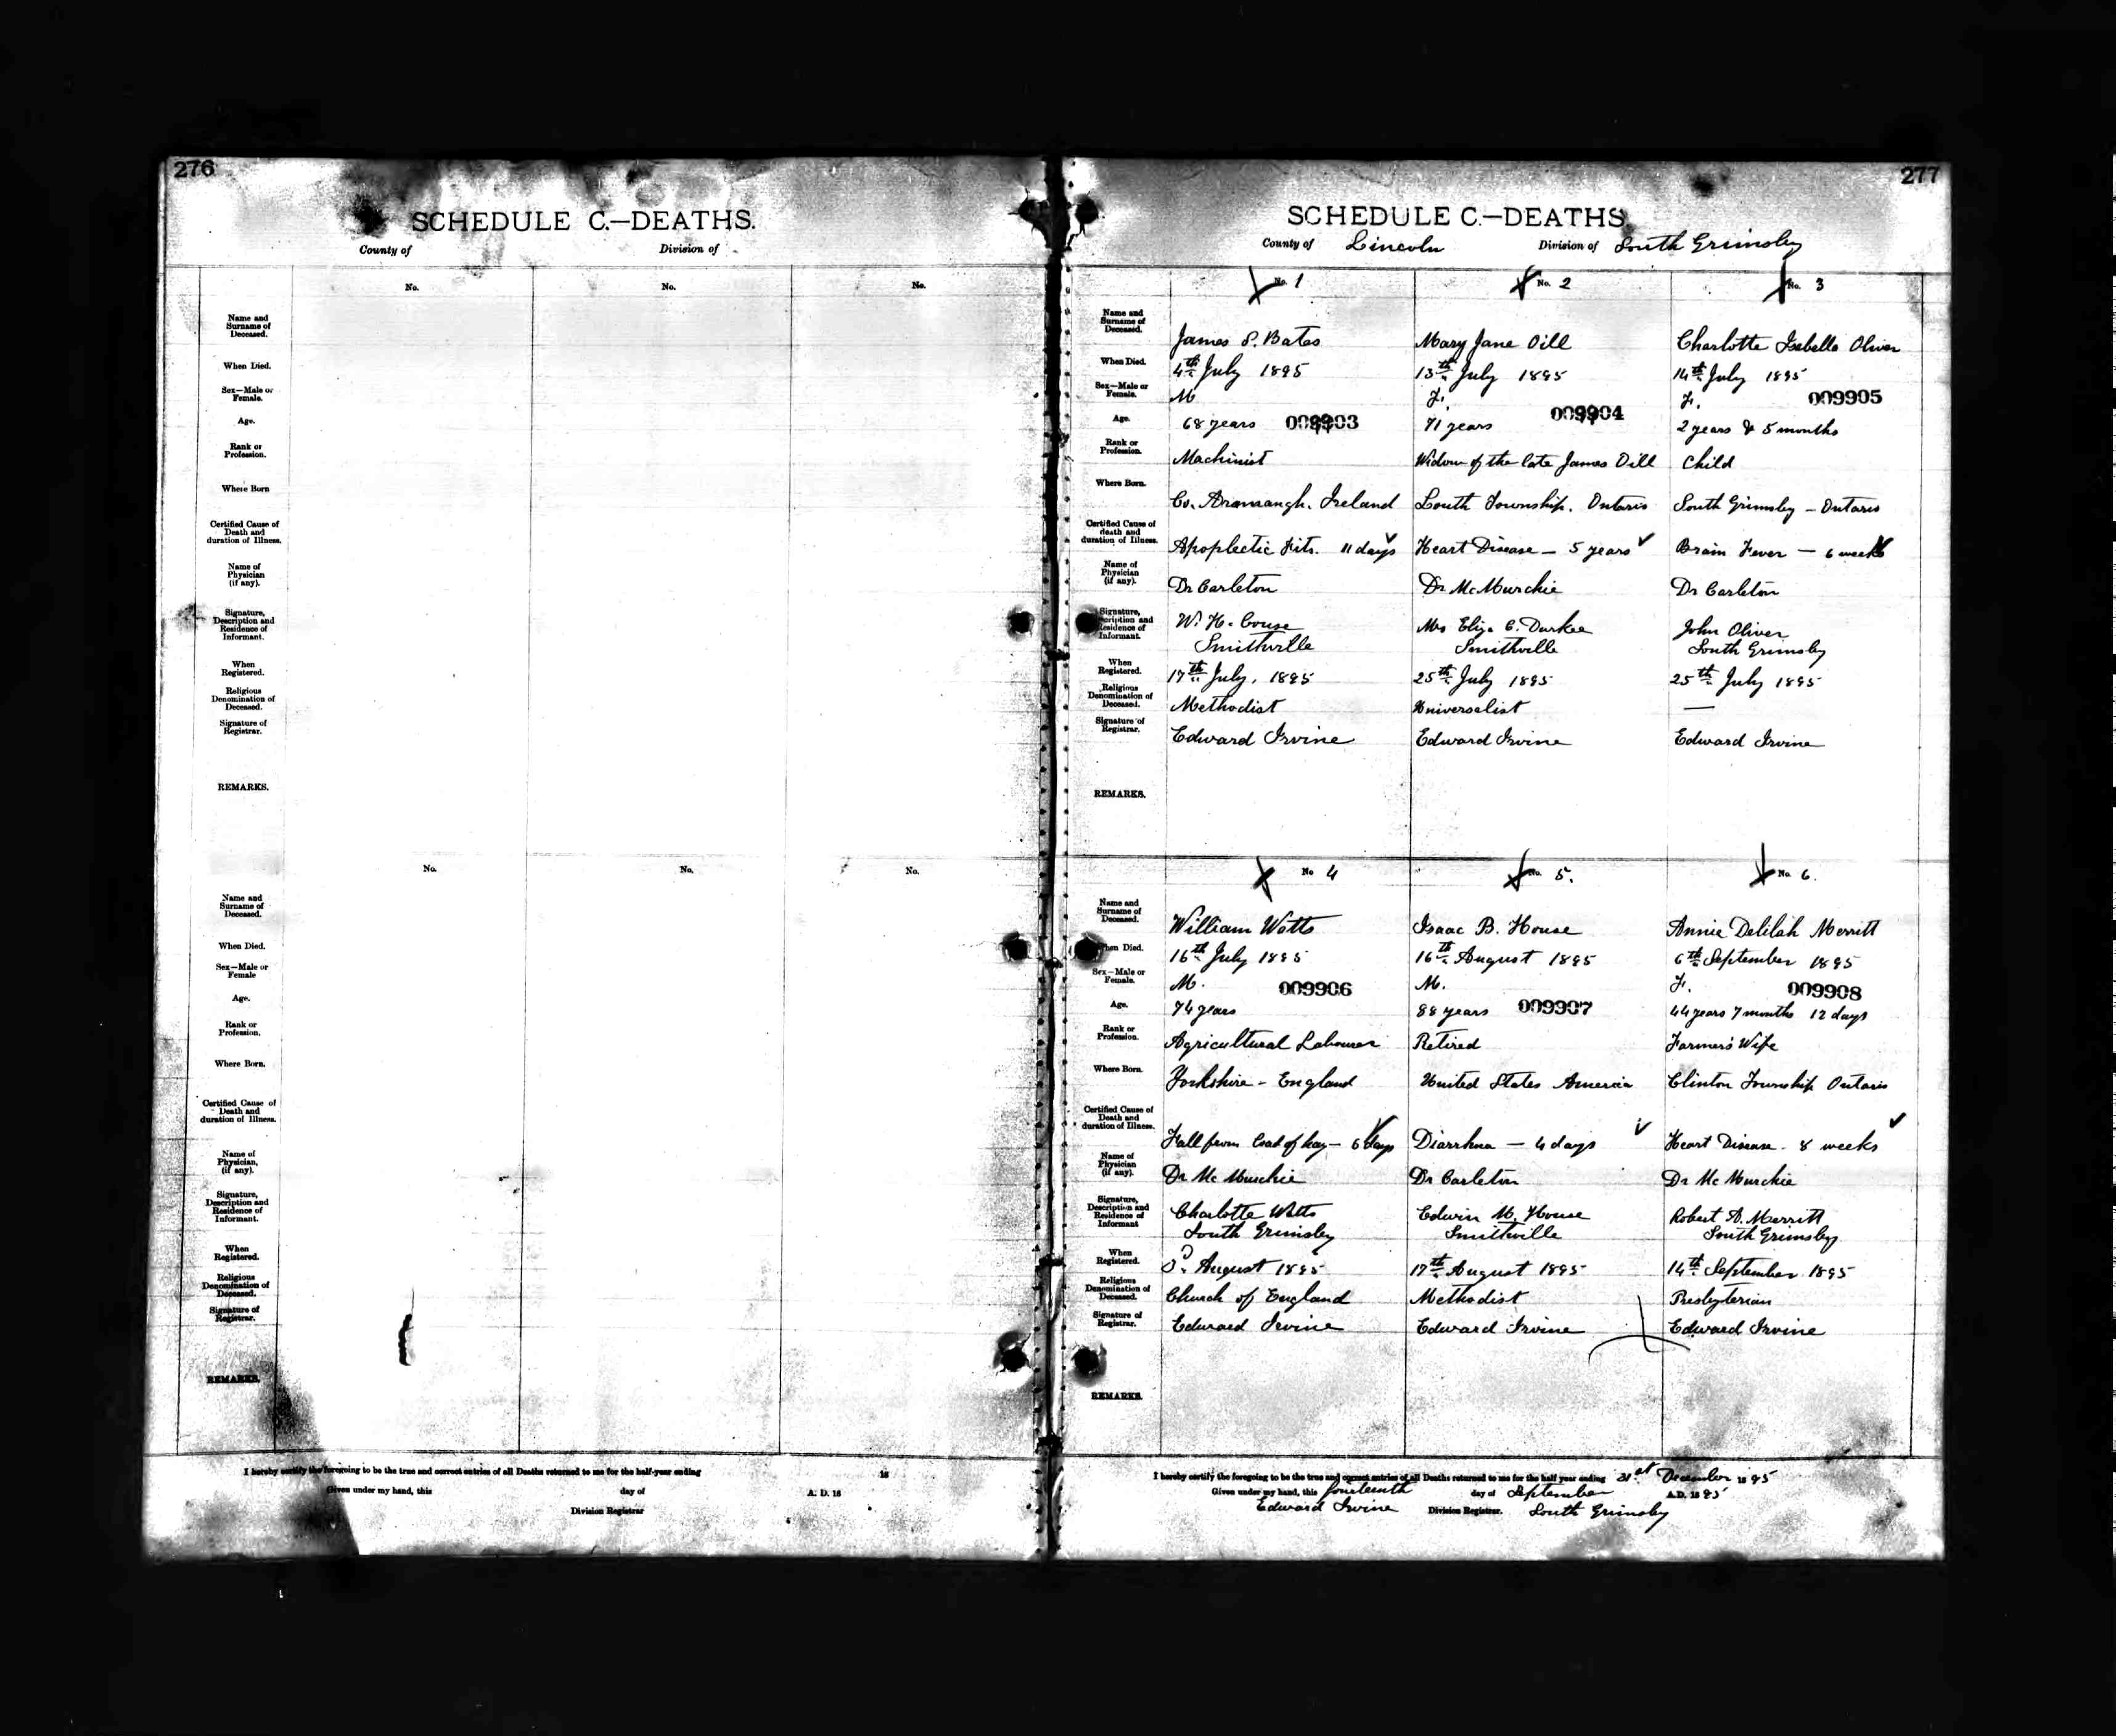 276
SCHEDULE C.—DEATHS.
County of Division of
No. No. No.
Name and
Surname of
Deceased.
When Died.
Sex—Male or
Female.
Age.
Rank or
Profession.
Where Born
Certified Cause of
Death and
duration of Illness.
Name of
Physician
(if any).
Signature,
Description and
Residence of
Informant.
When
Registered.
Religious
Denomination of
Deceased.
Signature of
Registrar.
REMARKS.
No. No. No.
Name and
Surname of
Deceased.
When Died.
Sex—Male or
Female
Age.
Rank or
Profession.
Where Born.
Certified Cause of
Death and
duration of Illness.
Name of
Physician,
(if any).
Signature,
Description and
Residence of
Informant.
When
Registered.
Religious
Denomination of
Deceased.
Signature of
Registrar.
REMARKS.
I hereby certify the foregoing to be the true and correct entries of all Deaths returned to me for the half-year ending 18
Given under my hand, this day of A. D. 18
Division Registrar
277
SCHEDULE C.—DEATHS
County of Lincoln Division of South Grimsby
No. 1 No. 2 No. 3
Name and
Surname of
Deceased.
James S. Bates Mary Jane Dill Charlotte Isabella Oliver
When Died. 4th July 1895 13th July 1895 14th July 1895
Sex—Male or
Female.
M F. F. 009905
Age. 68 years 009903 71 years 009904 2 years & 5 months
Rank or
Profession.
Machinist Widow of the late James Dill Child
Where Born.
Co. Aramangh. Ireland Louth Township. Ontario South Grimsby — Ontario
Certified Cause of
death and
duration of Illness.
Apoplectic Fits. 11 days Heart Disease — 5 years Brain Fever — 6 weeks
Name of
Physician
(if any).
Dr Carleton Dr McMurchie Dr Carleton
Signature,
Description and
Residence of
Informant.
W. H. Couse Mrs Eliza C. Durkee John Oliver
Smithville Smithville South Grimsby
When
Registered.
17th July, 1895 25th July 1895 25th July 1895
Religious
Denomination of
Deceased.
Methodist Universalist —
Signature of
Registrar.
Edward Irvine Edward Irvine Edward Irvine
REMARKS.
No 4 No. 5. No. 6.
Name and
Surname of
Deceased.
William Watts Isaac B. House Annie Delilah Merritt
When Died. 16th July 1895 16th August 1895 6th September 1895
Sex—Male or
Female.
M. 009906 M. F. 009908
Age. 74 years 88 years 009907 44 years 7 months 12 days
Rank or
Profession.
Agricultural Labourer Retired Farmer's Wife
Where Born. Yorkshire - England United States America Clinton Township Ontario
Certified Cause of
Death and
duration of Illness.
Fall from load of hay — 6 days Diarrhea — 4 days Heart Disease - 8 weeks
Name of
Physician
(if any).
Dr McMurchie Dr Carleton Dr McMurchie
Signature,
Description and
Residence of
Informant
Charlotte Watts Edwin M. House Robert A. Merritt
South Grimsby Smithville South Grimsby
When
Registered.
August 1895 17th August 1895 14th September 1895
Religious
Denomination of
Deceased.
Church of England Methodist Presbyterian
Signature of
Registrar.
Edward Irvine Edward Irvine Edward Irvine
REMARKS.
I hereby certify the foregoing to be the true and correct entries of all Deaths returned to me for the half year ending 31st December 1895
Given under my hand, this fourteenth day of September A.D. 1895
Edward Irvine Division Registrar. South Grimsby